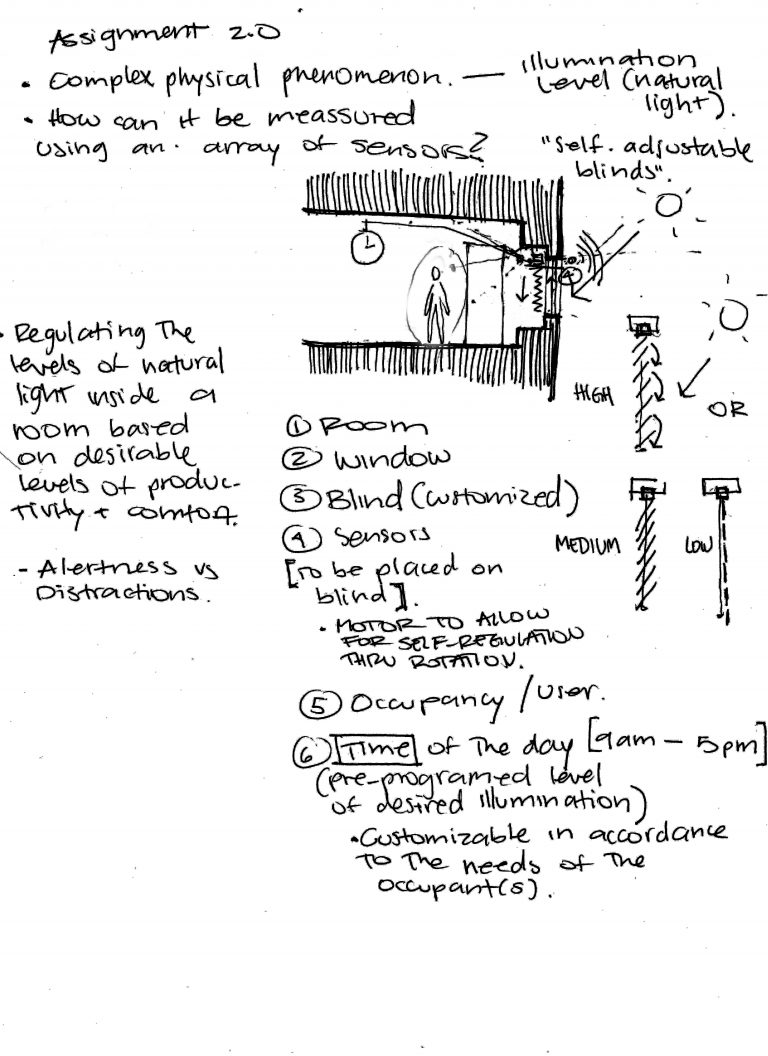 Assignment 2.0
• Complex physical phenomenon. — Illumination
Level (natural
light).
• How can it be meassured
using an. array of sensors?
"self. adjustable
blinds".
L
4
• Regulating The
levels of natural
light inside a
room based
on desirable
levels of produc-
tivity + comfort.
- Alertness vs
Distractions.
HIGH
OR
MEDIUM
LOW
① Room
② Window
③ Blind (customized)
④ Sensors
[To be placed on
blind].
• MOTOR TO ALLOW
FOR SELF-REGULATION
THRU ROTATION.
⑤ Occupancy / user.
⑥ Time of The day [9am – 5pm]
(pre-programed level
of desired illumination)
• Customizable in accordance
To The needs of The
occupant(s).